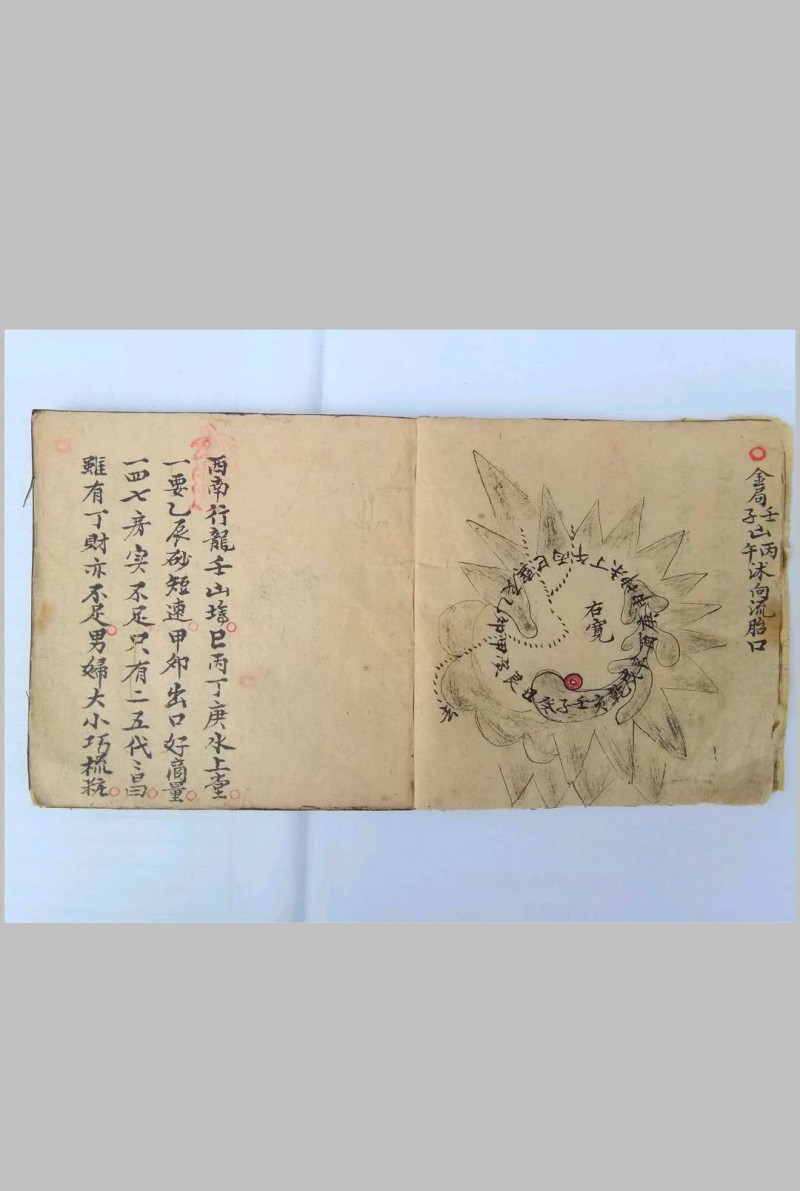 金局壬山丙沐向流胎口
子 午
右寬
巽巳丙午丁未坤
乙
艮丑癸子壬亥乾
西南行龍壬山塲巳丙丁庚水上堂
一要乙辰砂短速甲卯出口好商量
一四七房实不足只有二五代〻昌
雖有丁財亦不足男婦大小巧梳粧